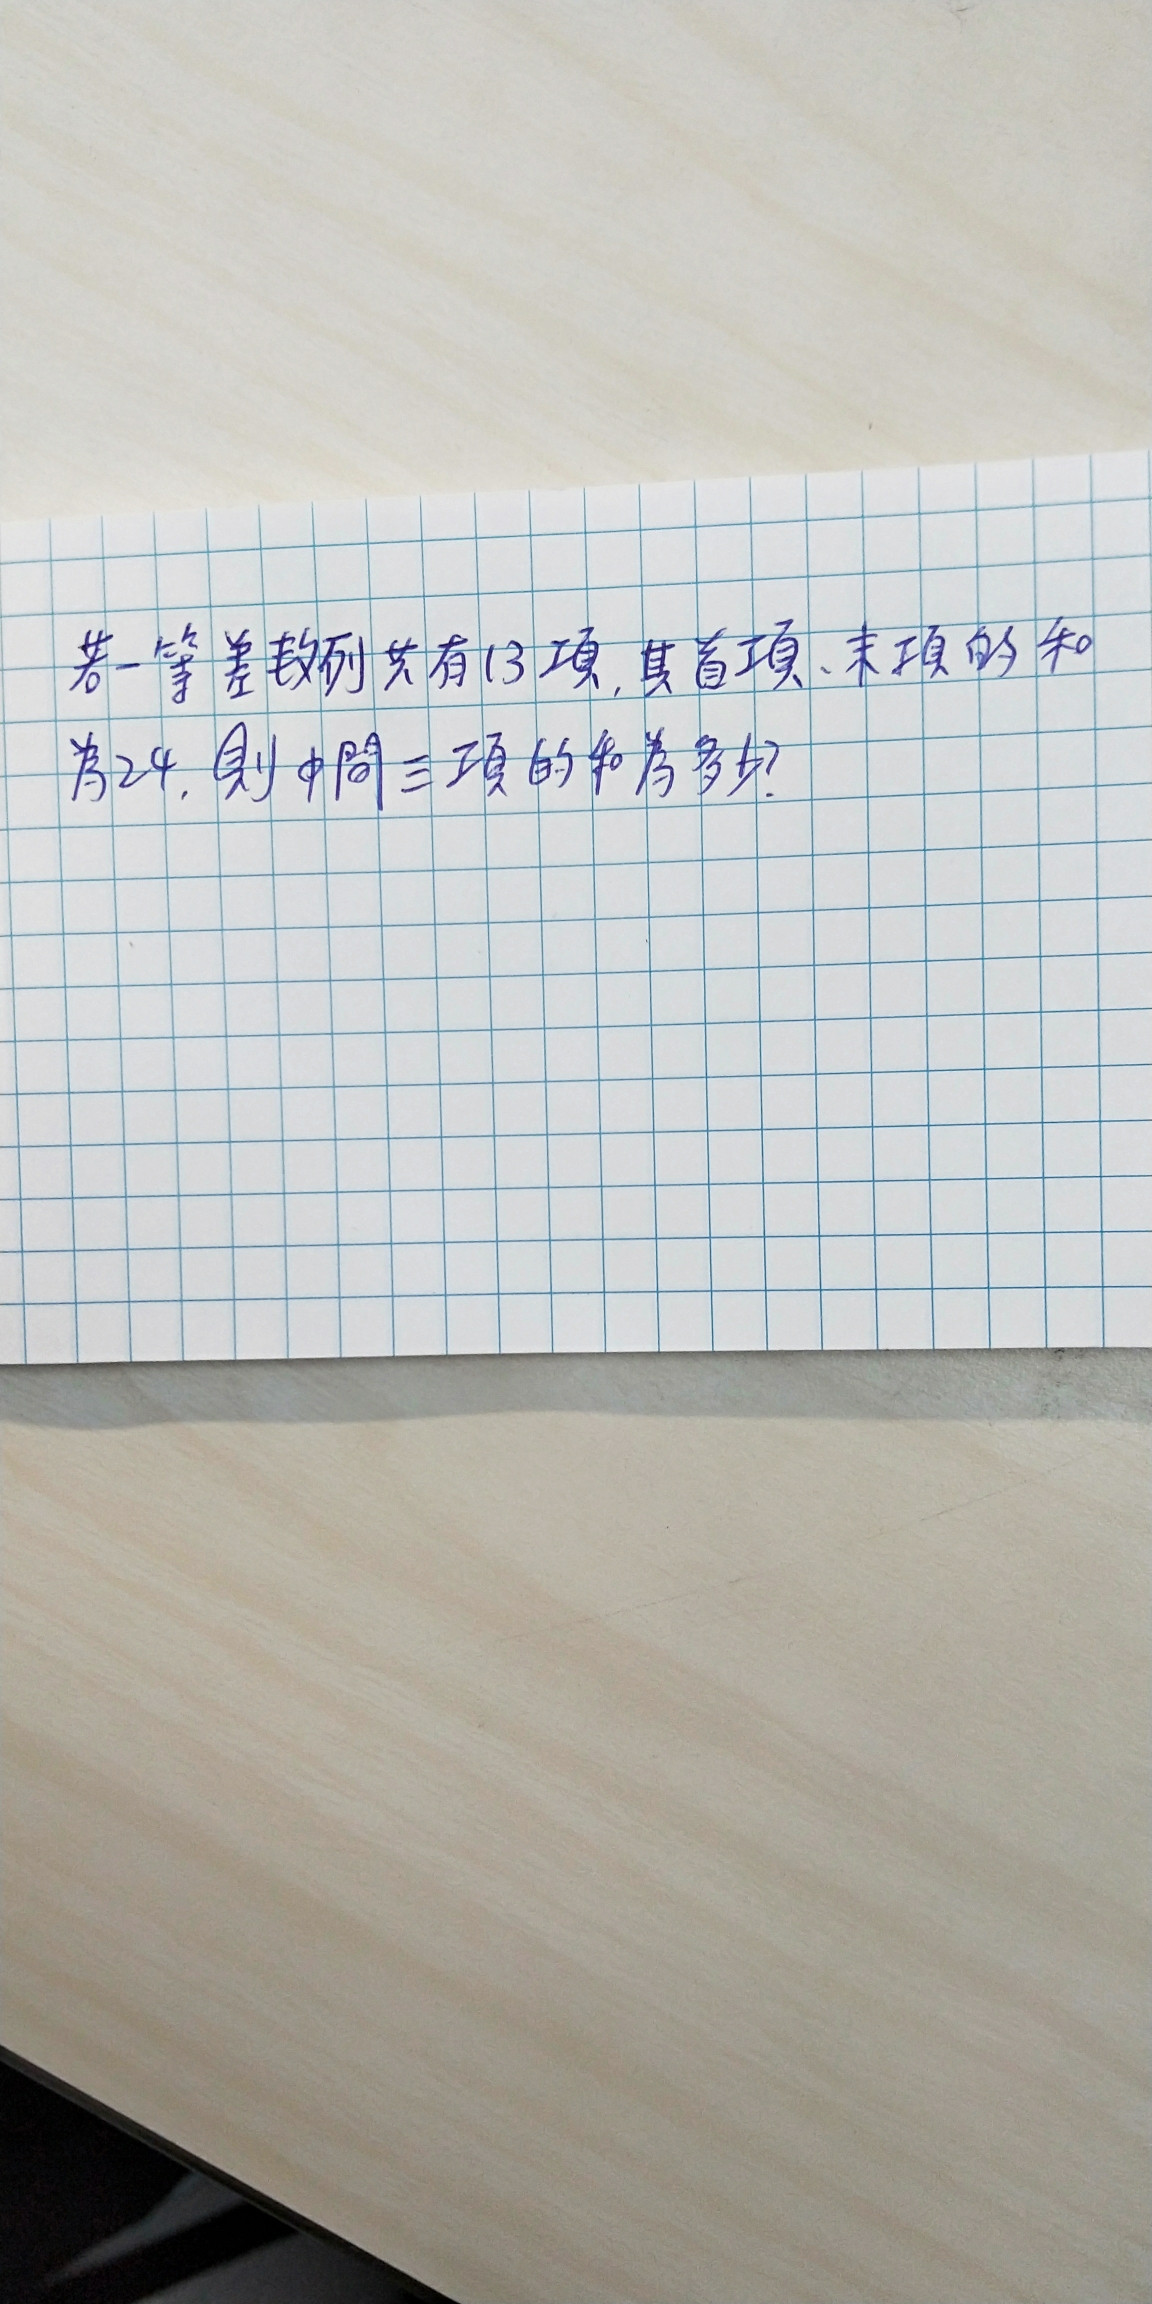 若一等差數列共有13項,其首項、末項的和
為24,則中間三項的和為多少?